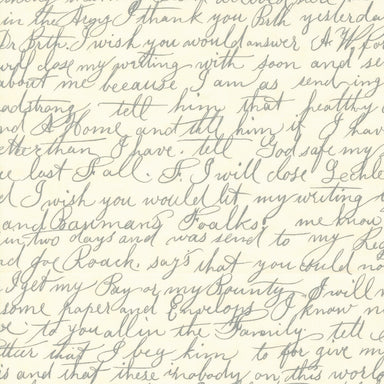 in the Army I thank you Both yesterday
Dr Brth. I wish you would answer
close my writing with soon and se
about me because I am as sending
adstrong tell him that healthy
nd A Home and tell him if I hav
etter than I have. tell God safe my
ce last Fall. F. I will close
d I wish you would let my writing
and Baumang Foalks. me know
in two days and was send to my Re
nd Joe Roack says that you could no
I get my Pay or my Bounty I will
some paper and Envelops I know n
to you all in the Family tell
tter that I beg him to for give m
is and that these in body on this world